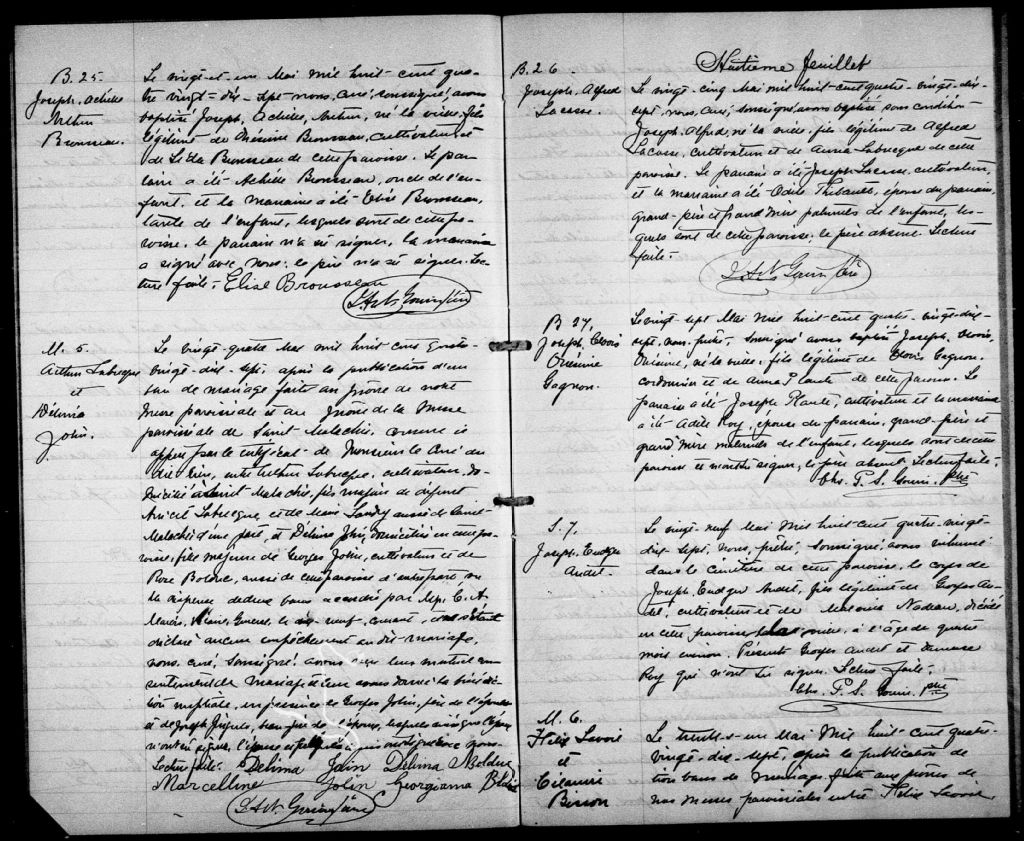 B. 25.
Joseph, Achille
Arthur
Brousseau.
Le vingt-et-un Mai mil huit-cent qua-
tre vingt-dix-sept nous, curé, soussigné, avons
baptisé Joseph, Achille, Arthur, né la veille, fils
légitime de Onésime Brousseau, cultivateur et
de Léda Brousseau de cette paroisse. Le par-
rain a été Achille Brousseau, oncle de l'en-
fant, et la marraine a été Elise Brousseau,
tante de l'enfant, lesquels sont de cette pa-
roisse. le parrain n'a su signer, la marraine
a signé avec nous. le père n'a su signer. Lec-
ture faite. Elise Brousseau
M. 5.
Arthur Labrecque
et
Délima
John.
Le vingt-quatre Mai mil huit cent quatre
vingt-dix-sept, après la publication d'un
ban de mariage faite au prône de notre
messe paroissiale et au prône de la messe
paroissiale de Saint-Malachie, comme il
appert par le certificat de Monsieur le Curé du
dit lieu, entre Arthur Labrecque, cultivateur, do-
micilié à Saint Malachie, fils majeur de défunt
Labrecque et de Marie aussi de Saint-
Malachie d'une part, et Délima John, domiciliée en cette pa-
roisse, fille majeure de Georges John, cultivateur et de
Rose Bolduc, aussi de cette paroisse d'autre part, vu
la dispense de deux bans accordée par Mgr. C. A.
Marois, Vicaire Général, le dix-neuf, courant,
déclaré aucun empêchement au dit mariage,
nous, curé, soussigné, avons reçu leur mutuel con-
sentement de mariage et leur avons donné la bénédic-
tion nuptiale, en présence de Georges John, père de l'épouse
et de Joseph
Lecture faite. Delima John Delima Bolduc
Marcelline John Georgianna
Huitième feuillet
B. 26.
Joseph, Alfred
Lacasse.
Le vingt-cinq Mai mil huit-cent quatre-vingt-dix-
sept, nous, curé, soussigné, avons baptisé sous condition
Joseph, Alfred, né la veille, fils légitime de Alfred
Lacasse, cultivateur et de Anna Labrecque de cette
paroisse. Le parrain a été Joseph Lacasse, cultivateur,
et la marraine a été Odile Thibault, épouse du parrain,
grand-père et grand mère paternels de l'enfant, les-
quels sont de cette paroisse, le père absent. Lecture
faite.
B 27.
Joseph, Clovis
Onésime
Gagnon.
Le vingt-sept Mai mil huit-cent quatre-vingt-dix-
sept, nous, prêtre, soussigné avons baptisé Joseph, Clovis,
Onésime, né la veille, fils légitime de Clovis Gagnon,
cordonnier et de Anna Plante de cette paroisse. Le
parrain a été Joseph Plante, cultivateur et la marraine
a été Adèle Roy, épouse du parrain, grand-père et
grand mère maternels de l'enfant, lesquels sont de cette
paroisse et n'ont su signer, le père absent. Lecture faite.
Chs. P. S. Gouin. Ptre
S. 7.
Joseph, Eudger
Audet.
Le vingt-neuf Mai mil huit-cent quatre-vingt-
dix-sept, nous, prêtre, soussigné, avons inhumé
dans le cimetière de cette paroisse, le corps de
Joseph, Eudger Audet, fils légitime de Georges Au-
det, cultivateur et de Malvina Nadeau, décédé
en cette paroisse la veille, à l'âge de quatre
mois environ. Présents Georges Audet et Damase
Roy qui n'ont su signer. Lecture faite.
Chs. P. S. Gouin. Ptre
M. 6.
Félix Savoie
et
Bisson
Le trente-et-un Mai mil huit-cent quatre-
vingt-dix-sept, après la publication de
trois bans de mariage faite aux prônes de
nos messes paroissiales entre Félix Savoie